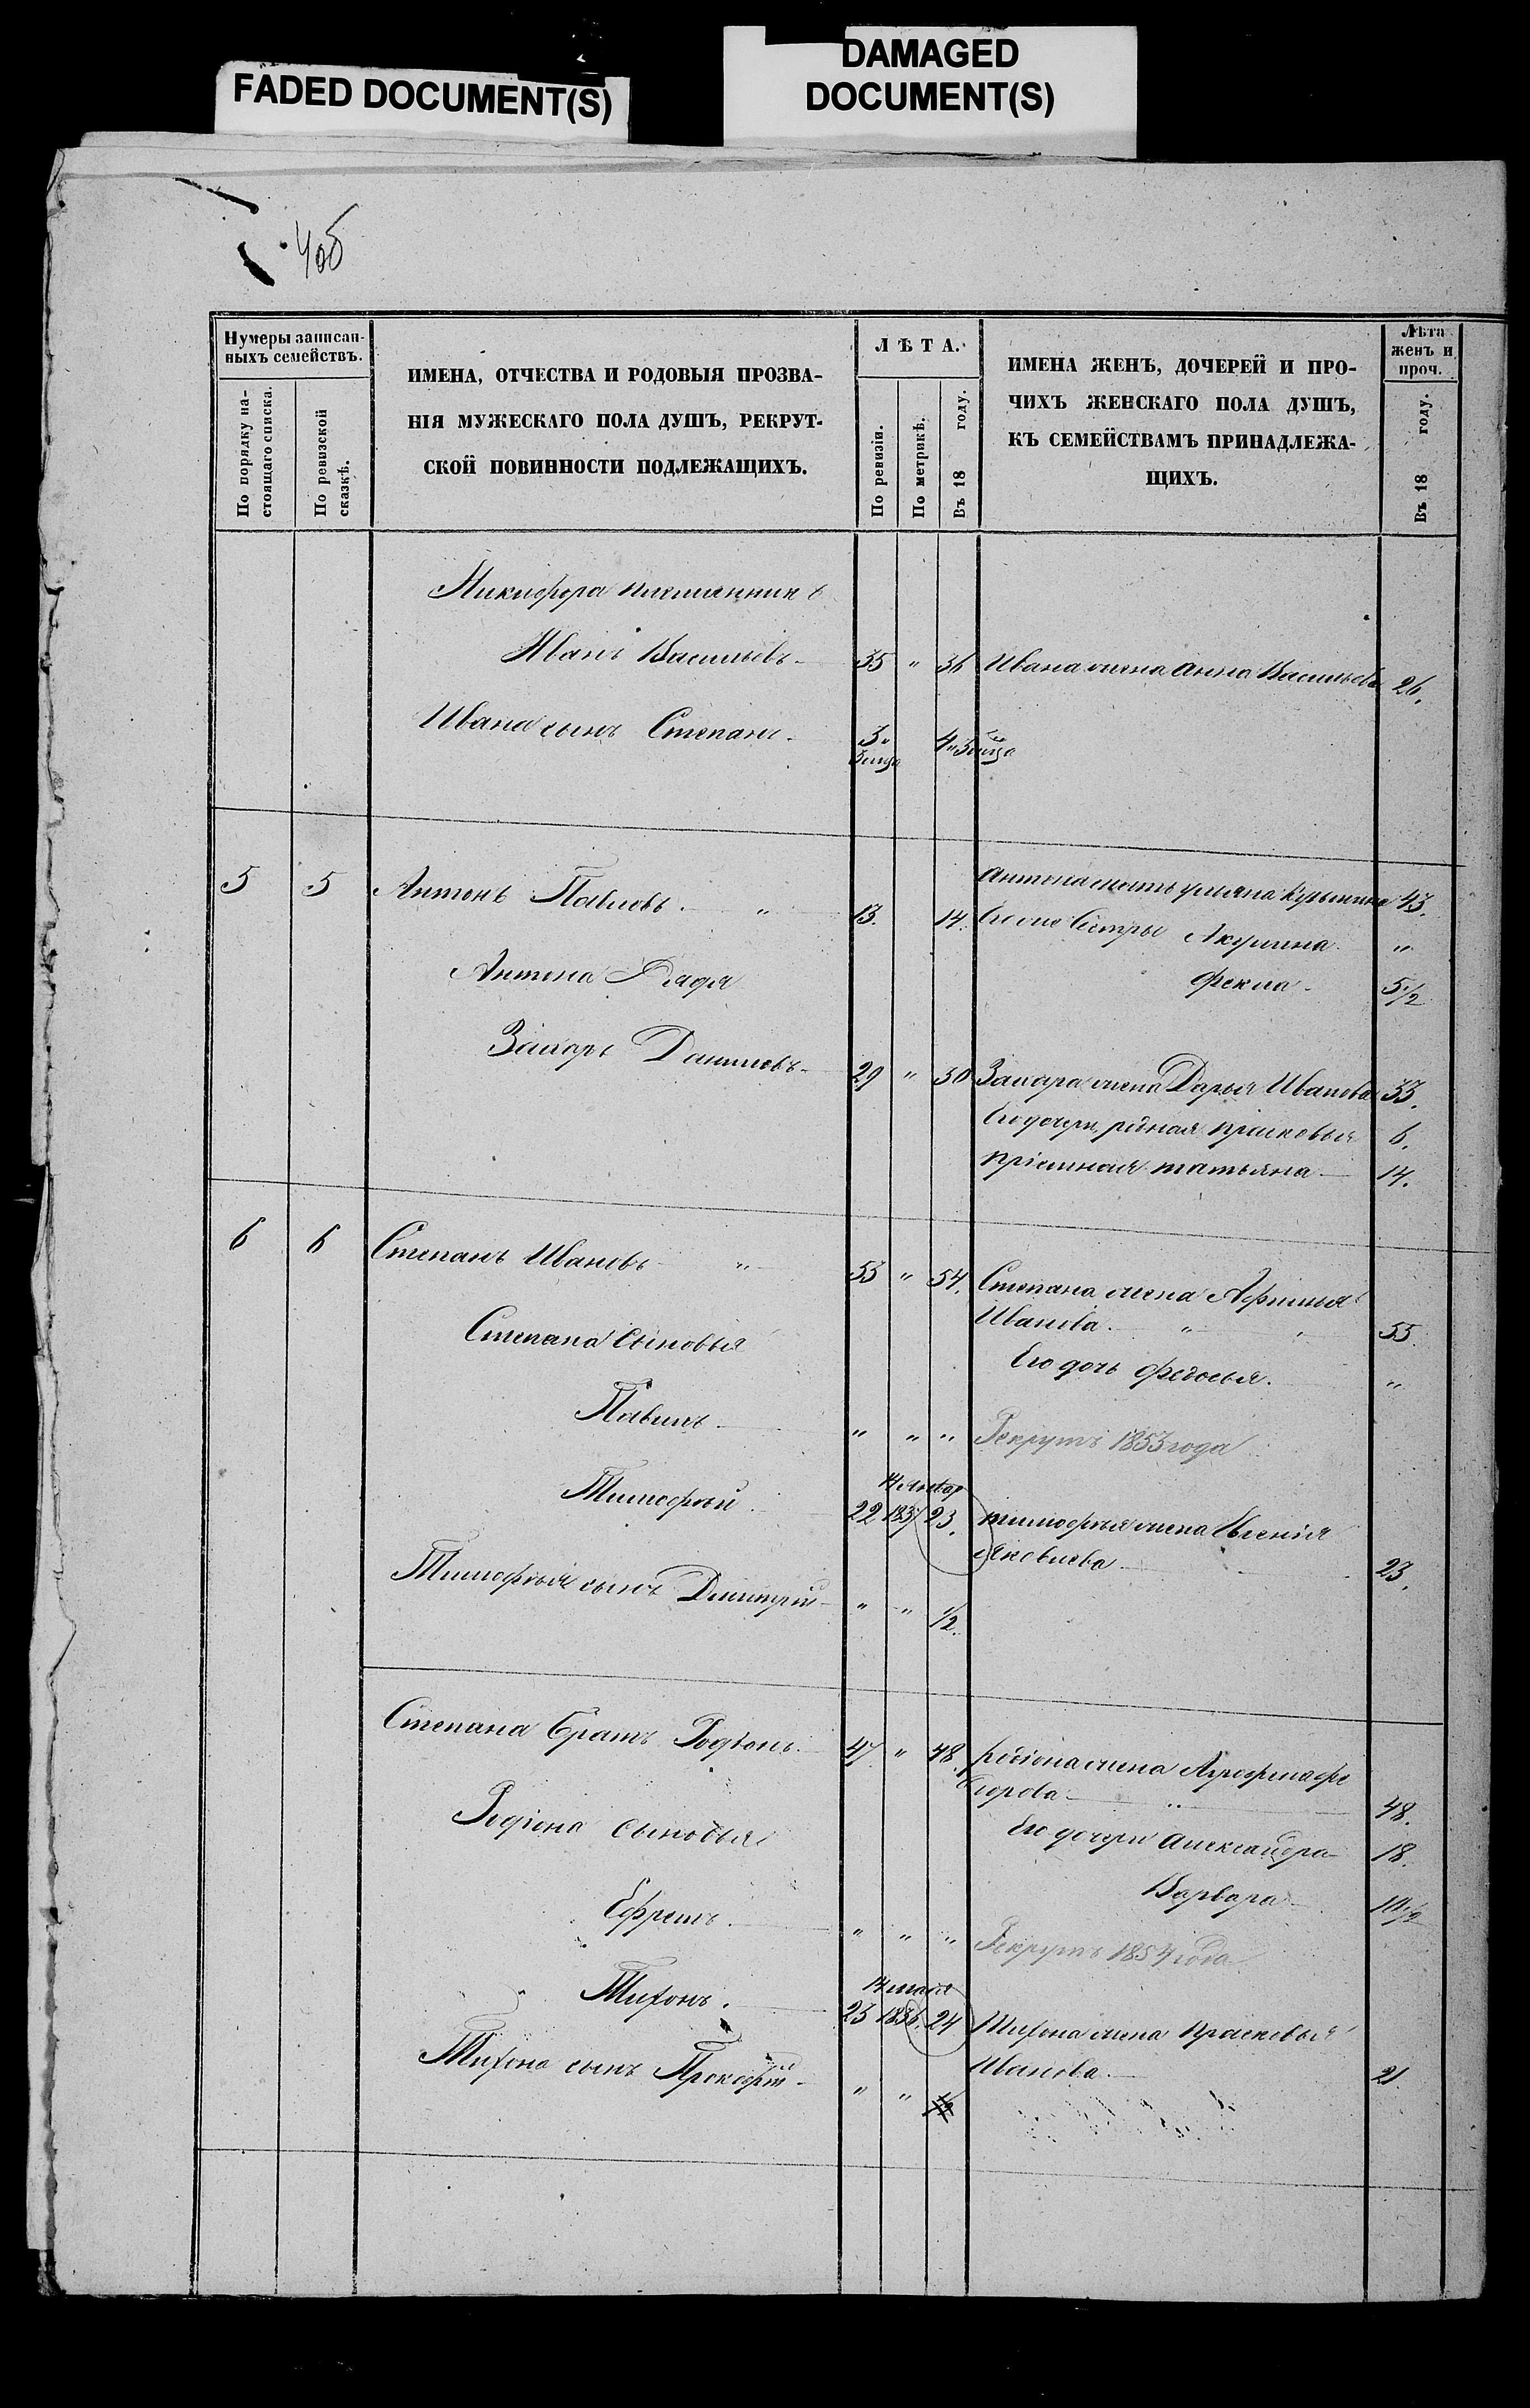 FADED DOCUMENT(S)
DAMAGED
DOCUMENT(S)
4об
Нумеры записан-
ныхъ семействъ.
По порядку на-
стоящаго списка.
По ревизской
сказкѣ.
ИМЕНА, ОТЧЕСТВА И РОДОВЫЯ ПРОЗВА-
НІЯ МУЖЕСКАГО ПОЛА ДУШЪ, РЕКРУТ-
СКОЙ ПОВИННОСТИ ПОДЛЕЖАЩИХЪ.
ЛѢТА.
По ревизіи.
По метрикѣ.
Въ 18 году.
ИМЕНА ЖЕНЪ, ДОЧЕРЕЙ И ПРО-
ЧИХЪ ЖЕНСКАГО ПОЛА ДУШЪ,
КЪ СЕМЕЙСТВАМЪ ПРИНАДЛЕЖА-
ЩИХЪ.
Лѣта
женъ и
проч.
Въ 18 году.
Никифора племянникъ
Иванъ Васильевъ 35 " 36 Ивана жена Анна Васильева 26.
Ивана сынъ Степанъ. 3. 4
5 5 Антонъ Павловъ. " 13. 14. Антона мать Ульяна Кузьмина 43.
Его же Сестры Акулина "
Антона Дядя Фекла 5 1/2
Захаръ Даниловъ 29 " 30 Захара жена Дарья Иванова 33.
Его дочери, родная Прасковья 6.
Пріемная Татьяна 14.
6 6 Степанъ Ивановъ " 53 " 54. Степана жена Афимья
Иванова. " 55
Степана Сыновья Его дочь Федосья. "
Павелъ " " " Рекрутъ 1853 года
14 Январ
Тимофѣй 22 1837 23. Тимофѣя жена Евгенія
Яковлева 23.
Тимофѣя сынъ Дмитрій " " 1/2.
Степана братъ Родіонъ. 47 " 48. Родіона жена Агрофена Фе
дорова " 48.
Родіона Сыновья Его дочери Александра 18.
Варвара 10 1/2
Ефремъ. " " " Рекрутъ 1854 года
14 мая
Тихонъ. 23 1836. 24 Тихона жена Прасковья
Иванова. 21.
Тихона сынъ Прокофій " "